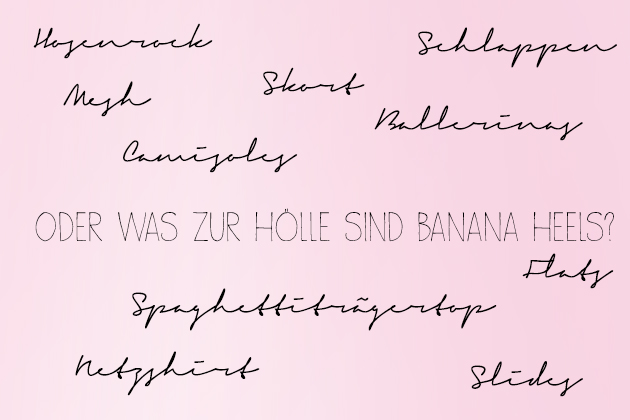 Hosenrock
Schlappen
Skort
Mesh
Ballerinas
Camisoles
ODER WAS ZUR HÖLLE SIND BANANA HEELS?
Flats
Spaghettiträgertop
Netzshirt
Slides